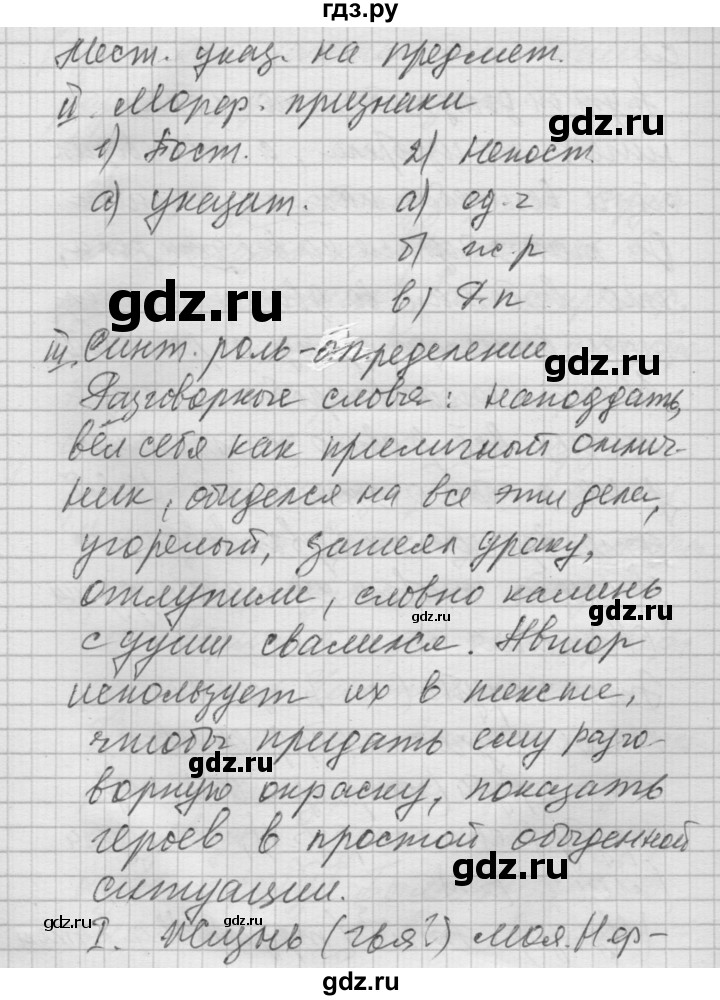 гдз.ру
Мест. указ. на предмет.
II. Морф. признаки
1) Пост. 2) Непост.
а) указат. а) ед. ч
б) ж. р
в) Д. п
III. Синт. роль - определение
Разговорные слова: наподдать,
вёл себя как приличный отлич-
ник, обиделся на все эти дела,
угорелый, зашеял драку,
отлупили, словно камень
с души свалился. Автор
использует их в тексте,
чтобы придать ему разго-
ворную окраску, показать
героев в простой обыденной
ситуации.
I. Жизнь (чья?) моя. Нар-
gdz.ru
gdz.ru
gdz.ru
gdz.ru
gdz.ru
gdz.ru
gdz.ru
gdz.ru
gdz.ru
gdz.ru
gdz.ru